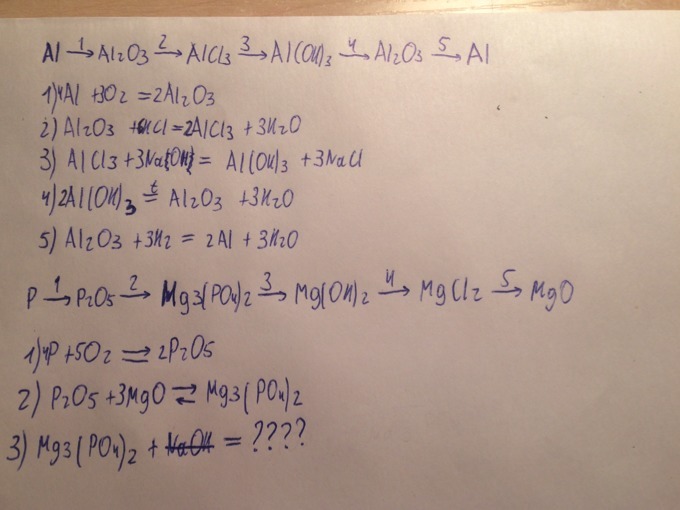 Al 1→ Al₂O₃ 2→ AlCl₃ 3→ Al(OH)₃ 4→ Al₂O₃ 5→ Al
1) 4Al + 3O₂ = 2Al₂O₃
2) Al₂O₃ + HCl = 2AlCl₃ + 3H₂O
3) AlCl₃ + 3Na(OH) = Al(OH)₃ + 3NaCl
4) 2Al(OH)₃ t= Al₂O₃ + 3H₂O
5) Al₂O₃ + 3H₂ = 2Al + 3H₂O
P 1→ P₂O₅ 2→ Mg₃(PO₄)₂ 3→ Mg(OH)₂ 4→ MgCl₂ 5→ MgO
1) 4P + 5O₂ = 2P₂O₅
2) P₂O₅ + 3MgO ⇄ Mg₃(PO₄)₂
3) Mg₃(PO₄)₂ + NaOH = ????